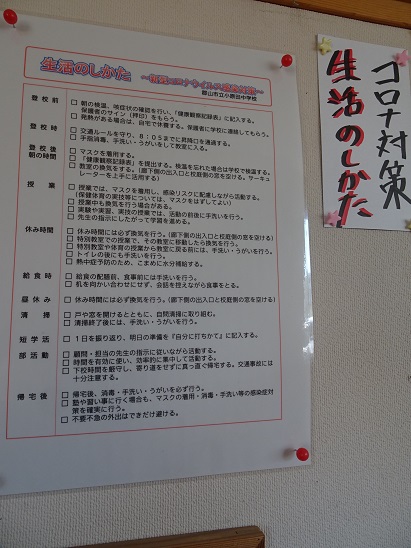 生活のしかた ～新型コロナウイルス感染症対策～
郡山市立小原田中学校
登校前 □ 朝の検温、咳症状の確認を行い、「健康観察記録表」に記入する。
保護者のサイン（押印）をもらう。
□ 発熱がある場合は、自宅で休養する。保護者に学校に連絡してもらう。
登校時 □ 交通ルールを守り、８：０５までに昇降口を通過する。
□ 手指消毒、手洗い・うがいをして教室に入る。
登校後 朝の時間 □ マスクを着用する。
□ 「健康観察記録表」を提出する。検温を忘れた場合は学校で検温する。
□ 教室の換気をする。（廊下側の出入口と校庭側の窓を開ける。サーキュレーターを上手に活用する）
授業 □ 授業では、マスクを着用し、感染リスクに配慮しながら活動する。
（保健体育の実技等については、マスクをはずしてよい）
□ 授業中も換気を行う場合がある。
□ 実験や実習、実技の授業では、活動の前後に手洗いを行う。
□ 先生の指示にしたがって学習を進める。
休み時間 □ 休み時間には必ず換気を行う。（廊下側の出入口と校庭側の窓を開ける）
□ 特別教室での授業で、その教室に移動したら換気を行う。
□ 特別教室や体育の授業から教室に戻る前には、手洗い・うがいを行う。
□ トイレの後にも手洗いを行う。
□ 熱中症予防のため、こまめに水分補給する。
給食時 □ 給食の配膳前、食事前には手洗いを行う。
□ 机を向かい合わせにせず、会話を控えながら食事をとる。
昼休み □ 休み時間には必ず換気を行う。（廊下側の出入口と校庭側の窓を開ける）
清掃 □ 戸や窓を開けるとともに、自問清掃に取り組む。
□ 清掃終了後には、手洗い・うがいを行う。
短学活 □ １日を振り返り、明日の準備を『自分に打ちかて』に記入する。
部活動 □ 顧問・担当の先生の指示に従いながら活動する。
□ 時間を有効に使い、効率的に集中して活動する。
□ 下校時間を厳守し、寄り道をせずに真っ直ぐ帰宅する。交通事故には十分注意する。
帰宅後 □ 帰宅後、消毒・手洗い・うがいを必ず行う。
□ 塾や習い事に行く場合も、マスクの着用・消毒・手洗い等の感染症対策を確実に行う。
□ 不要不急の外出はできだけ避ける。
コロナ対策
生活のしかた